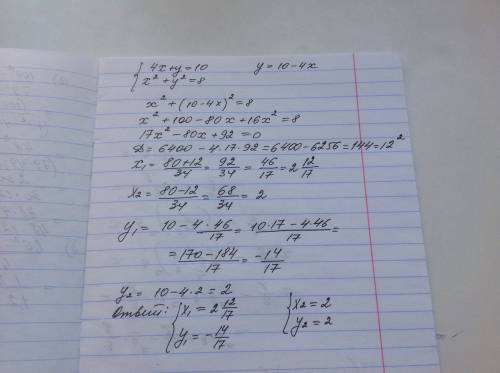 { 4x+y=10    y=10-4x
{ x²+y²=8
x²+(10-4x)²=8
x²+100-80x+16x²=8
17x²-80x+92=0
D=6400-4·17·92=6400-6256=144=12²
x₁=80+12/34=92/34=46/17=2 12/17
x₂=80-12/34=68/34=2
y₁=10-4·46/17=10·17-4·46/17=
=170-184/17=-14/17
y₂=10-4·2=2
Ответ: { x₁=2 12/17    { x₂=2
{ y₁=-14/17    { y₂=2